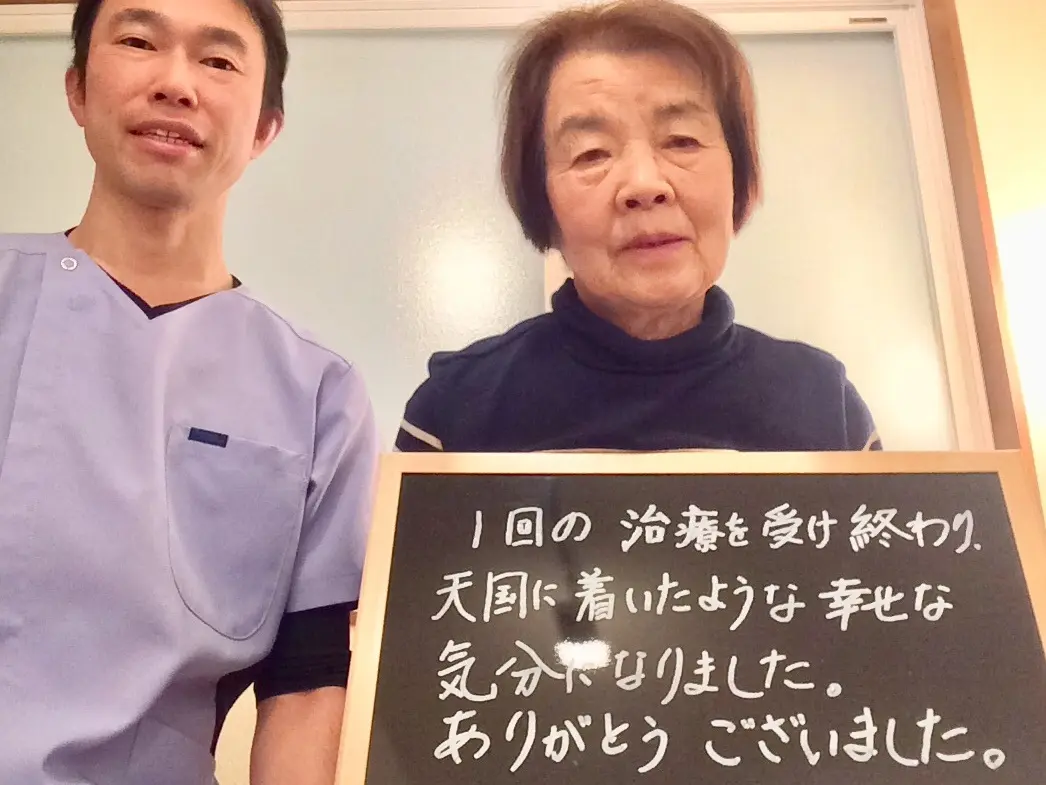 1回の 治療を受け終わり、
天国に着いたような幸せな
気分になりました。
ありがとう ございました。